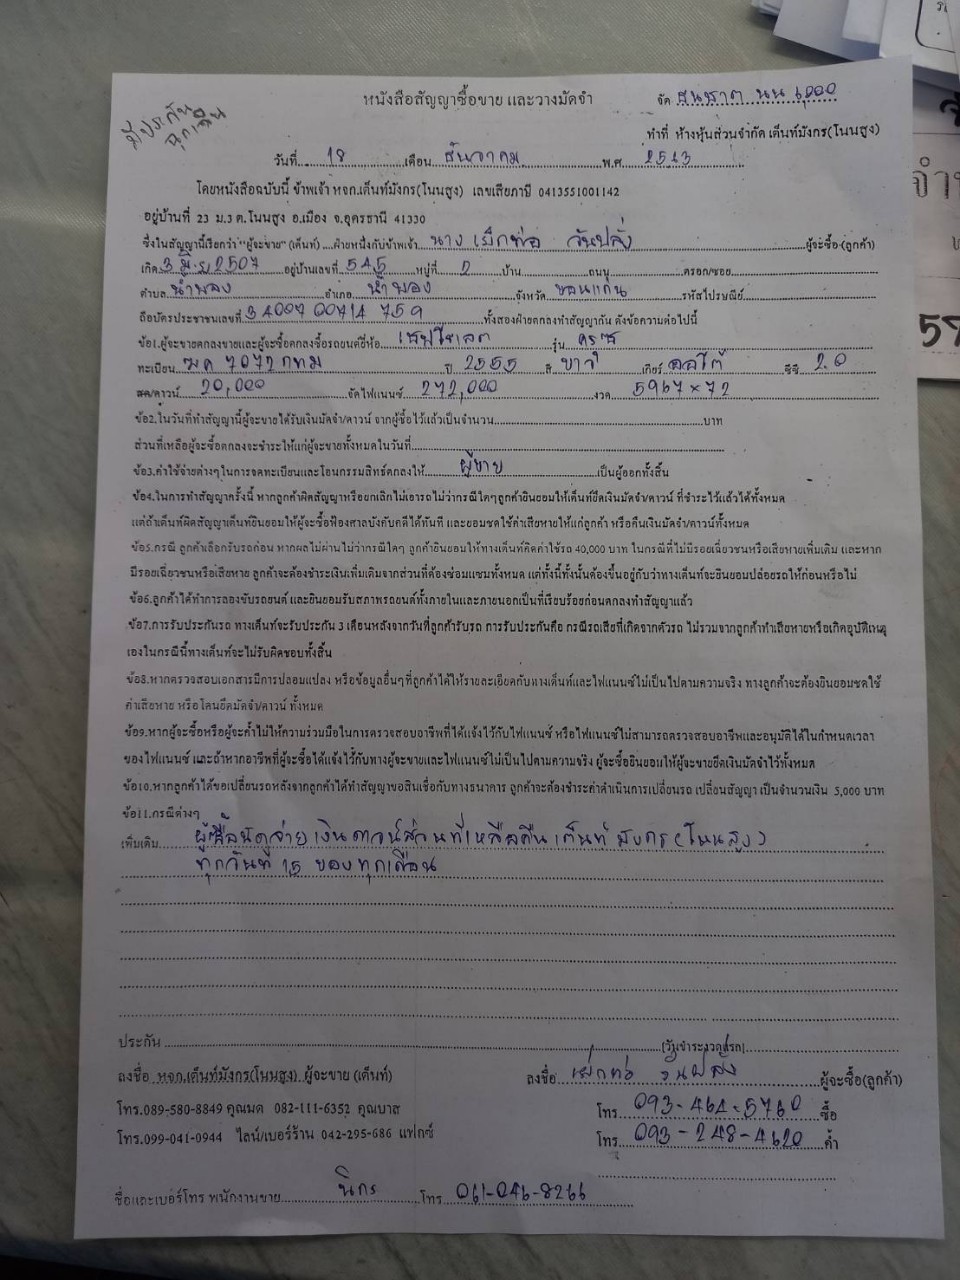 หนังสือสัญญาซื้อขาย และวางมัดจำ
จัด ธนชาต
มีประกัน
ฉุกเฉิน
ทำที่ ห้างหุ้นส่วนจำกัด เต็นท์มังกร(โนนสูง)
วันที่ 18 เดือน ธันวาคม พ.ศ. 2563
โดยหนังสือฉบับนี้ ข้าพเจ้า หจก.เต็นท์มังกร(โนนสูง) เลขเสียภาษี 0413551001142
อยู่บ้านที่ 23 ม.3 ต.โนนสูง อ.เมือง จ.อุดรธานี 41330
ซึ่งในสัญญานี้เรียกว่า "ผู้จะขาย" (เต็นท์) ฝ่ายหนึ่งกับข้าพเจ้า นาง ผู้จะซื้อ (ลูกค้า)
เกิด 3 มิ.ย. 2507 อยู่บ้านเลขที่ 545 หมู่ที่ 2 บ้าน ถนน ตรอก/ซอย
ตำบล น้ำพอง อำเภอ น้ำพอง จังหวัด ขอนแก่น รหัสไปรษณีย์
ถือบัตรประชาชนเลขที่ 3 4007 00714 75 9 ทั้งสองฝ่ายตกลงทำสัญญากัน ดังข้อความต่อไปนี้
ข้อ1.ผู้จะขายตกลงขายและผู้จะซื้อตกลงซื้อรถยนต์ยี่ห้อ เชฟโรเลต รุ่น ครูซ
ทะเบียน ฆค 7072 กทม ปี 2555 สี ขาว เกียร์ ออโต้ ซีซี 2.0
สด/ดาวน์ 20,000 จัดไฟแนนซ์ 272,000 งวด 5967 x 72
ข้อ2.ในวันที่ทำสัญญานี้ผู้จะขายได้รับเงินมัดจำ/ดาวน์ จากผู้ซื้อไว้แล้วเป็นจำนวน บาท
ส่วนที่เหลือผู้จะซื้อตกลงจะชำระให้แก่ผู้จะขายทั้งหมดในวันที่
ข้อ3.ค่าใช้จ่ายต่างๆในการจดทะเบียนและโอนกรรมสิทธิ์ตกลงให้ ผู้ขาย เป็นผู้ออกทั้งสิ้น
ข้อ4.ในการทำสัญญาครั้งนี้ หากลูกค้าผิดสัญญาหรือยกเลิกไม่เอารถไม่ว่ากรณีใดๆลูกค้ายินยอมให้เต็นท์ยึดเงินมัดจำ/ดาวน์ ที่ชำระไว้แล้วได้ทั้งหมด
แต่ถ้าเต็นท์ผิดสัญญาเต็นท์ยินยอมให้ผู้จะซื้อฟ้องศาลบังคับคดีได้ทันที และยอมชดใช้ค่าเสียหายให้แก่ลูกค้า หรือคืนเงินมัดจำ/ดาวน์ทั้งหมด
ข้อ5.กรณี ลูกค้าเลือกรับรถก่อน หากผลไม่ผ่านไม่ว่ากรณีใดๆ ลูกค้ายินยอมให้ทางเต็นท์คิดค่าใช้รถ 40,000 บาท ในกรณีที่ไม่มีรอยเฉี่ยวชนหรือเสียหายเพิ่มเติม และหาก
มีรอยเฉี่ยวชนหรือเสียหาย ลูกค้าจะต้องชำระเงินเพิ่มเติมจากส่วนที่ต้องซ่อมแซมทั้งหมด แต่ทั้งนี้ทั้งนั้นต้องขึ้นอยู่กับว่าทางเต็นท์จะยินยอมปล่อยรถให้ก่อนหรือไม่
ข้อ6.ลูกค้าได้ทำการลองขับรถยนต์ และยินยอมรับสภาพรถยนต์ทั้งภายในและภายนอกเป็นที่เรียบร้อยก่อนตกลงทำสัญญาแล้ว
ข้อ7.การรับประกันรถ ทางเต็นท์จะรับประกัน 3 เดือนหลังจากวันที่ลูกค้ารับรถ การรับประกันคือ กรณีรถเสียที่เกิดจากตัวรถ ไม่รวมจากลูกค้าทำเสียหายหรือเกิดอุบัติเหตุ
เองในกรณีนี้ทางเต็นท์จะไม่รับผิดชอบทั้งสิ้น
ข้อ8.หากตรวจสอบเอกสารมีการปลอมแปลง หรือข้อมูลอื่นๆที่ลูกค้าได้ให้รายละเอียดกับทางเต็นท์และไฟแนนซ์ไม่เป็นไปตามความจริง ทางลูกค้าจะต้องยินยอมชดใช้
ค่าเสียหาย หรือโดนยึดมัดจำ/ดาวน์ ทั้งหมด
ข้อ9.หากผู้จะซื้อหรือผู้จะค้ำไม่ให้ความร่วมมือในการตรวจสอบอาชีพที่ได้แจ้งไว้กับไฟแนนซ์ หรือไฟแนนซ์ไม่สามารถตรวจสอบอาชีพและอนุมัติได้ในกำหนดเวลา
ของไฟแนนซ์ และถ้าหากอาชีพที่ผู้จะซื้อได้แจ้งไว้กับทางผู้จะขายและไฟแนนซ์ไม่เป็นไปตามความจริง ผู้จะซื้อยินยอมให้ผู้จะขายยึดเงินมัดจำไว้ทั้งหมด
ข้อ10.หากลูกค้าได้ขอเปลี่ยนรถหลังจากลูกค้าได้ทำสัญญาขอสินเชื่อกับทางธนาคาร ลูกค้าจะต้องชำระค่าดำเนินการเปลี่ยนรถ เปลี่ยนสัญญา เป็นจำนวนเงิน 5,000 บาท
ข้อ11.กรณีต่างๆ
เพิ่มเติม ผู้ซื้อนัดจ่ายเงินดาวน์ส่วนที่เหลือคืน เต็นท์ มังกร (โนนสูง)
ทุกวันที่ 15 ของทุกเดือน
ประกัน (วันชำระงวดรถ)
ลงชื่อ หจก.เต็นท์มังกร(โนนสูง) ผู้จะขาย (เต็นท์)
ลงชื่อ ผู้จะซื้อ(ลูกค้า)
โทร.089-580-8849 คุณมด 082-111-6352 คุณบาส
โทร 093-464-5760 ซื้อ
โทร.099-041-0944 ไลน์/เบอร์ร้าน 042-295-686 แฟกซ์
โทร 093-248-4620 ค้ำ
ชื่อและเบอร์โทร พนักงานขาย นิกร โทร 061-046-8266